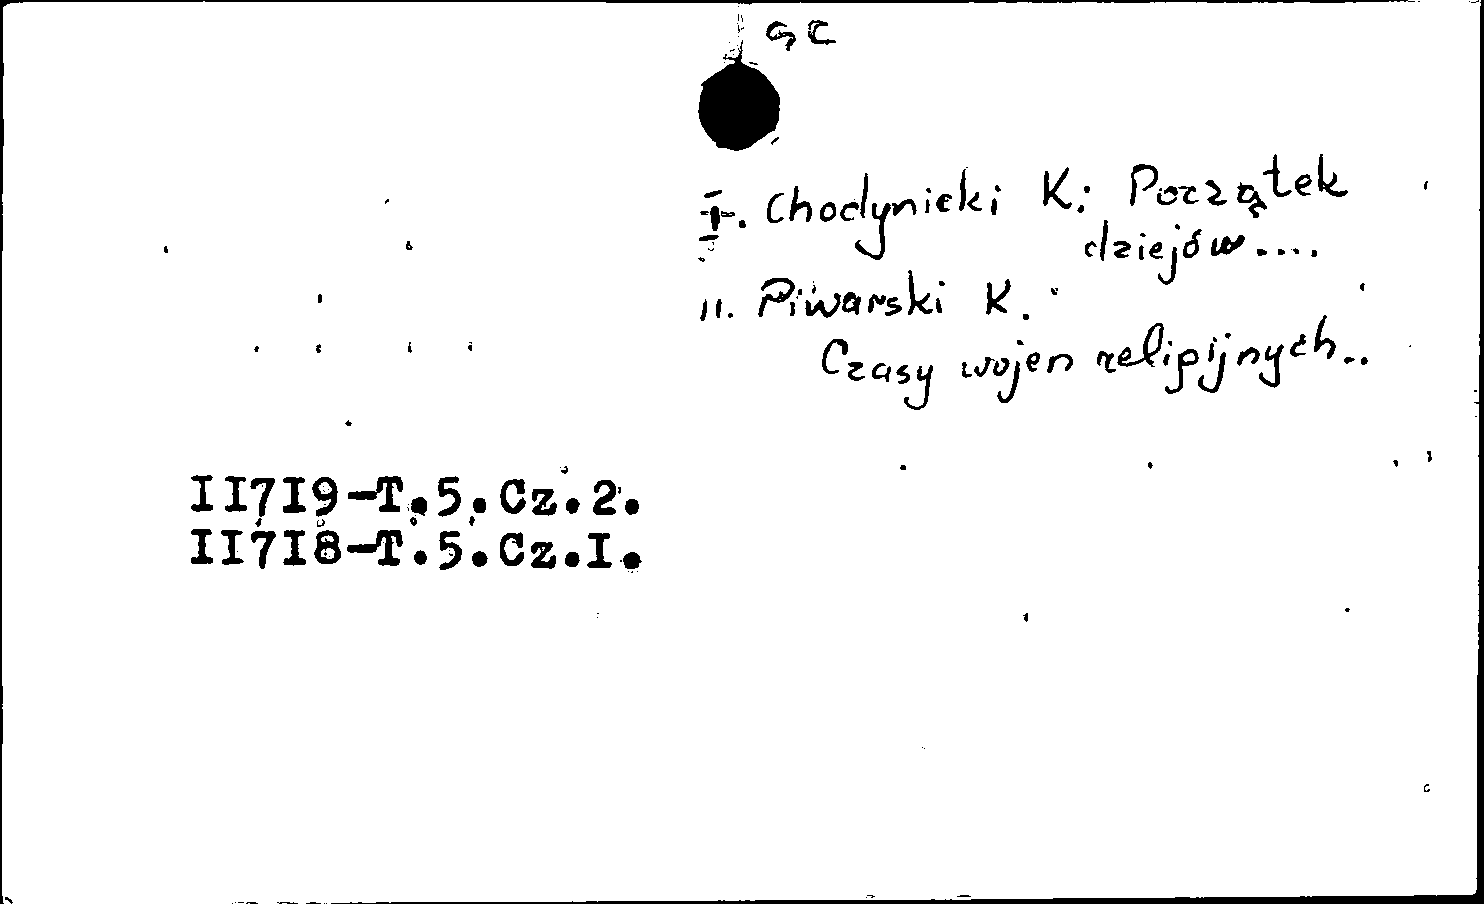 GC
I. Chodynicki K: Początek
dziejów....
II. Piwarski K.
Czasy wojen religijnych..
II7I9-T.5.Cz.2.
II7I8-T.5.Cz.I.